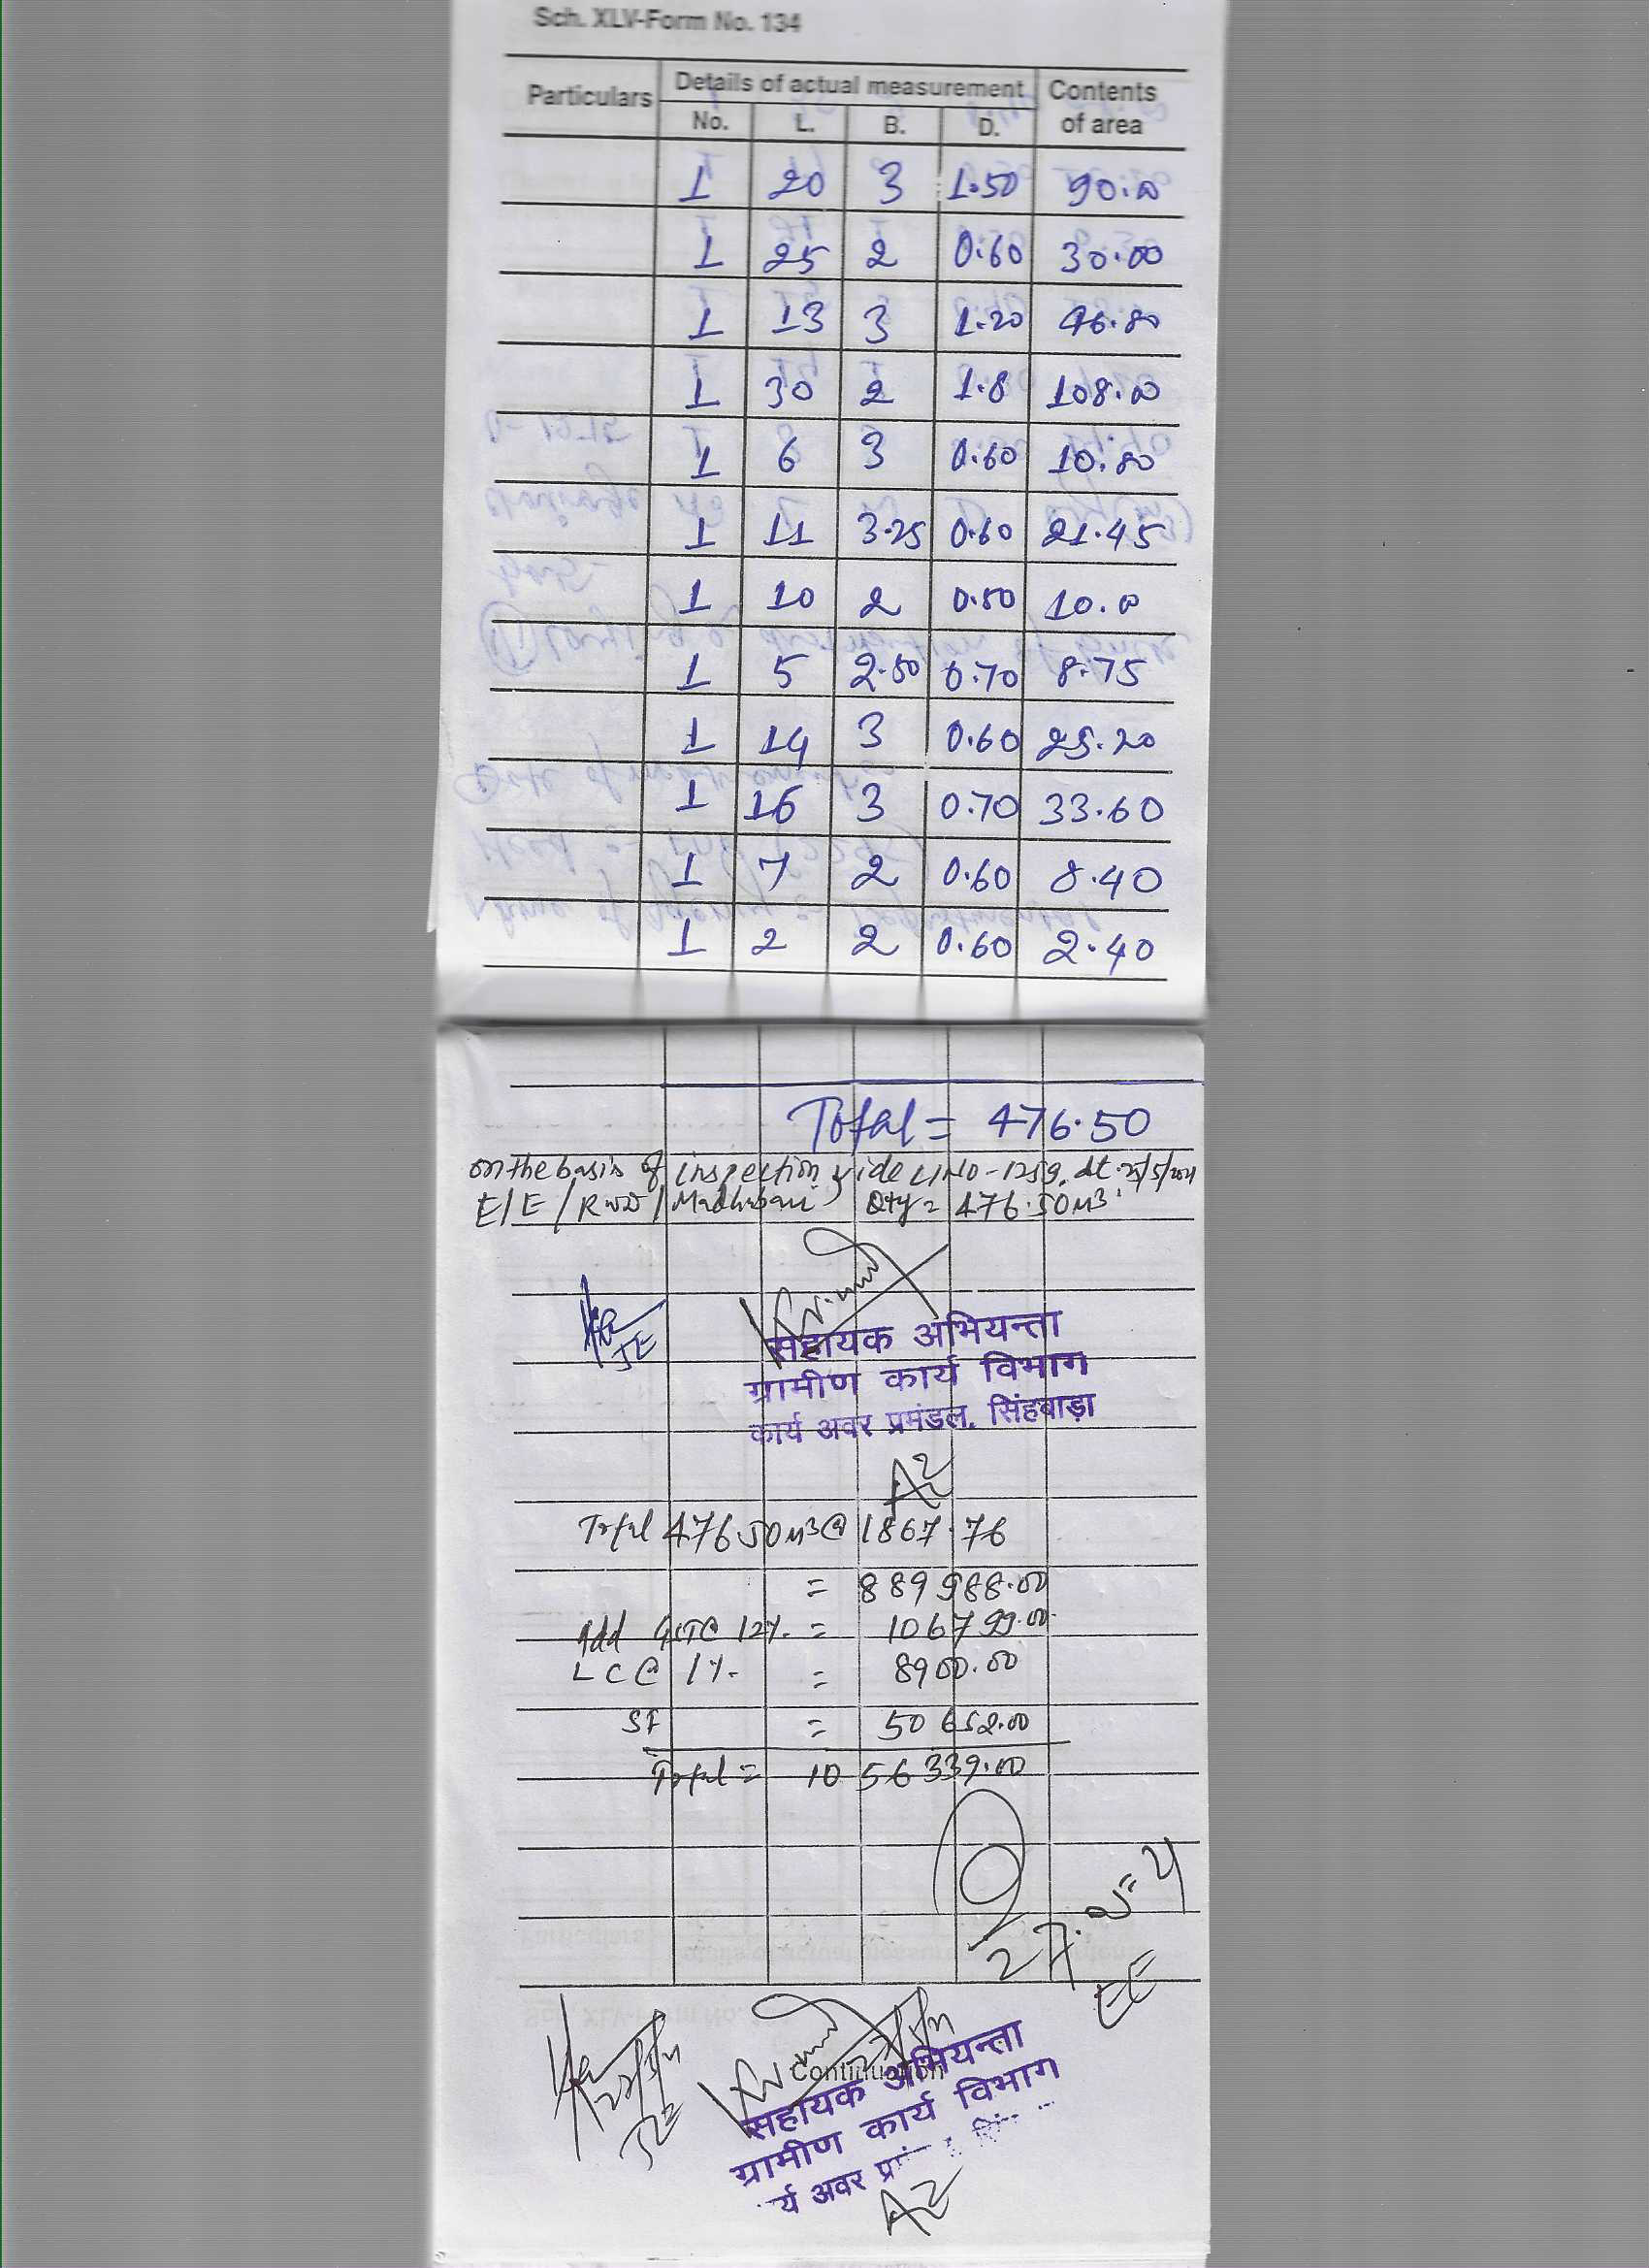 Sch. XLV-Form No. 134
Particulars Details of actual measurement Contents of area
No. L. B. D.
1 20 3 1.50 90.00
1 25 2 0.60 30.00
1 13 3 1.20 46.80
1 30 2 1.8 108.00
1 6 3 0.60 10.80
1 11 3.25 0.60 21.45
1 10 2 0.50 10.00
1 5 2.50 0.70 8.75
1 14 3 0.60 25.20
1 16 3 0.70 33.60
1 7 2 0.60 8.40
1 2 2 0.60 2.40
Total = 476.50
on the basis of inspection vide LNo-1259, dt.
E/E/RWD/Madhubani, Qty = 476.50M3
JE
सहायक अभियन्ता
ग्रामीण कार्य विभाग
कार्य अवर प्रमंडल, सिंहवाड़ा
AE
Total 476.50M3@ 1867.76
= 889988.00
Add GST@ 12%. = 106799.00
LC@ 1%. = 8900.00
SF = 50652.00
Total = 1056339.00
EE
JE
Continuation
सहायक अभियन्ता
ग्रामीण कार्य विभाग
र्य अवर
AE